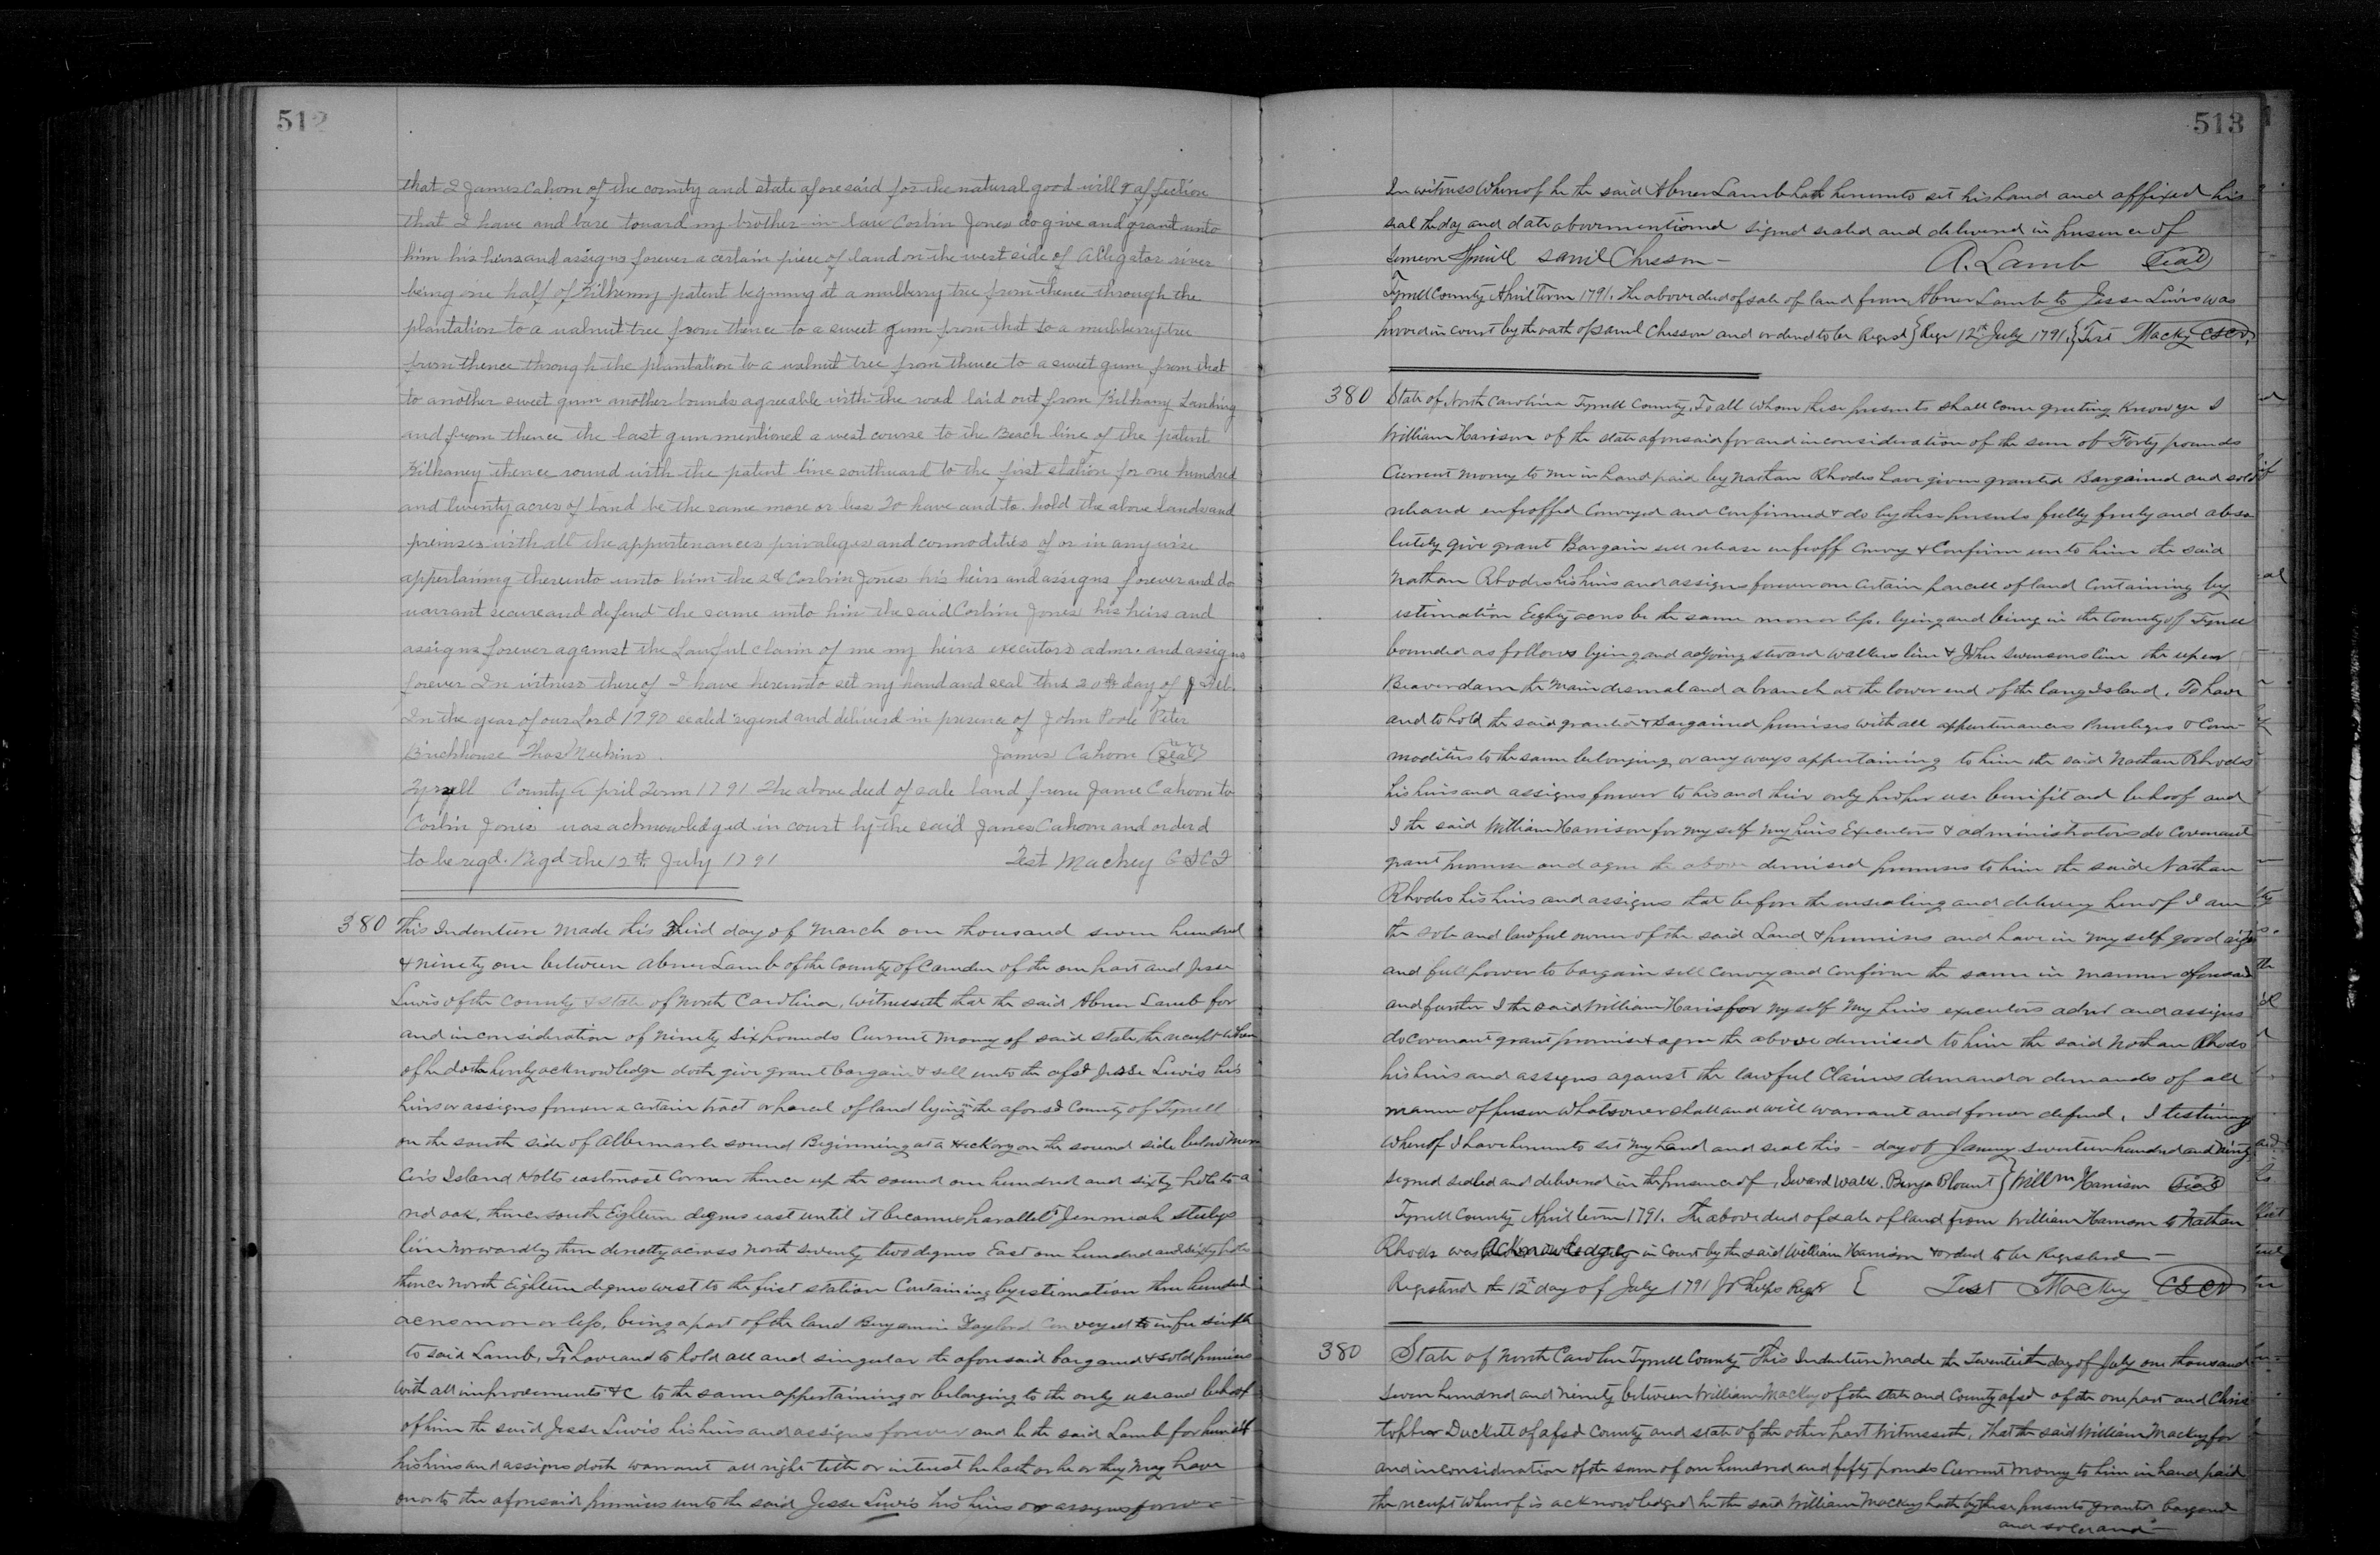 512
that I James Cahoon of the county and state aforesaid for the natural good will & affection
that I have and bare toward my brother-in-law Corbin Jones do give and grant unto
him his heirs and assigns forever a certain piece of land on the west side of Alligator river
being one half of Kilkenny patent begining at a mulberry tree from thence through the
plantation to a walnut tree from thence to a sweet gum from that to a mulberry tree
from thence through the plantation to a walnut tree from thence to a sweet gum from that
to another sweet gum another bounds agreeable with the road laid out from Kilkany Landing
and from thence the last gum mentioned a west course to the Beach line of the patent
Kilkaney thence round with the patent line southward to the first station for one hundred
and twenty acres of land be the same more or less To have and to hold the above lands and
premises with all the appurtenances privaliges and comodities of or in any wise
appertaining thereunto unto him the sd Corbin Jones his heirs and assigns forever and do
warrant secure and defend the same unto him the said Corbin Jones his heirs and
assigns forever against the lawful claim of me my heirs executors admr. and assigns
forever In witness thereof I have hereunto set my hand and seal this 20th day of Feb.
In the year of our Lord 1790 sealed signed and deliverd in presence of John Poole Peter
Brickhouse Thos Meekins. James Cahoon (Seal)
Tyrrell County April Term 1791 The above deed of sale land from Jame Cahoon to
Corbin Jones was acknowledged in court by the said James Cahoon and orderd
to be regd. Regd the 12th July 1791 Test Mackey C S C T
380 This Indenture made this Third day of March one thousand seven hundred
& ninety one between Abner Lamb of the County of Camden of the one part and Jesse
Lewis of the County & state of North Carolina, witnesseth that the said Abner Lamb for
and in consideration of ninety six pounds Current money of said state, the receipt when
of he doth hereby acknowledge doth give grant bargain & sell unto the afsd Jesse Lewis his
heirs or assigns forever a certain tract or parcel of land lying in the aforesd County of Tyrrell
on the south side of Albermarle sound Beginning at a Hickory on the sound side below
Island Holts eastmost Corner thence up the sound one hundred and sixty pole to a
red oak, thence south Eighteen degrees east until it becomes parallel Jeremiah
line norwardly then directly across north seventy two degrees East one hundred and sixty poles
thence north Eighteen degrees west to the first station Containing by estimation three hundred
acres more or less, being a part of the land Benjamin Gaylord Conveyed to in fee simple
to said Lamb, To have and to hold all and singular the aforesaid bargaind & sold premises
with all improvements &C to the same appertaining or belonging to the only use and behoof
of him the said Jesse Lewis his heirs and assigns forever and he the said Lamb for himself
his heirs and assigns doth warrant all right title or interest he hath or he or they may have
on or to the aforesaid premises unto the said Jesse Lewis his heirs or assigns forever
513
In witness whereof he the said Abner Lamb hath hereunto set his hand and affixed his
seal the day and date above mentioned signed sealed and delivered in presence of
Simeon Spruill Saml Chesson - A. Lamb (Seal)
Tyrrell County April Term 1791. The above deed of sale of land from Abner Lamb to Jesse Lewis was
proved in court by the oath of Saml Chesson and ordered to be Regisd } Regr 12th July 1791 } Test Macky CSCT
380 State of North Carolina Tyrrell County, To all whom these presents shall come greeting Know ye I
William Harison of the state aforesaid for and in consideration of the sum of Forty pounds
Current money to me in hand paid by Nathan Rhodes have given granted Bargained and sold
released enfeoffed Conveyed and Confirmed & do by these presents fully freely and abso
lutely give grant Bargain sell release enfeoff Convey & Confirm unto him the said
Nathan Rhodes his heirs and assigns forever one certain parcell of land Containing by
estimation Eighty acres be the same more or less, lying and being in the County of Tyrrell
bounded as follows lying and adjoing Steward Walkers line & John Swensons line the upper
Beaverdam the main desmal and a branch at the lower end of the long Island, To have
and to hold the said granted & Bargained premises with all appurtenances Priveleges & Com-
modities to the same belonging or any ways appertaining to him the said Nathan Rhodes
his heirs and assigns forever to his and their only proper use benifit and behoof and
I the said William Harrison for my self my heirs Executors & administrators do Covenant
grant promise and agree the above demised premises to him the said Nathan
Rhodes his heirs and assigns that before the ensealing and delivery hereof I am
the sole and lawful owner of the said Land & premises and have in my self good
and full power to bargain sell convey and confirm the same in manner aforesaid
and further I the said William Haris for my self my heirs executors admr and assigns
do covenant grant promise & agree the above demised to him the said Nathan Rhodes
his heirs and assigns against the lawful Claims demand or demands of all
manner of person whatsoever shall and will warrant and forever defend, I testimony
whereof I have hereunto set my hand and seal this - day of January seventeen hundred and ninty
signed sealed and delivered in the presence of, Steward Walk. Benja Blount } Willm Harrison (Seal)
Tyrrell County April term 1791. The above deed of sale of land from William Harrison to Nathan
Rhods was acknowledgely in Court by the said William Harrison & orderd to be Registerd -
Registerd the 12th day of July 1791 Regtr { Test Mackey CSCT
380 State of North Carolin Tyrrell County This Indenture made the Twentieth day of July one thousand
seven hundred and ninety between William Mackey of the state and County afsd of the one part and Chris
topher Duckitt of afsd County and state of the other part witnesseth, that the said William Mackey for
and in consideration of the sum of one hundred and fifty pounds Current money to him in hand paid
the receipt whereof is acknowledged he the said William Mackey hath by these presents granted bargend
and sold and